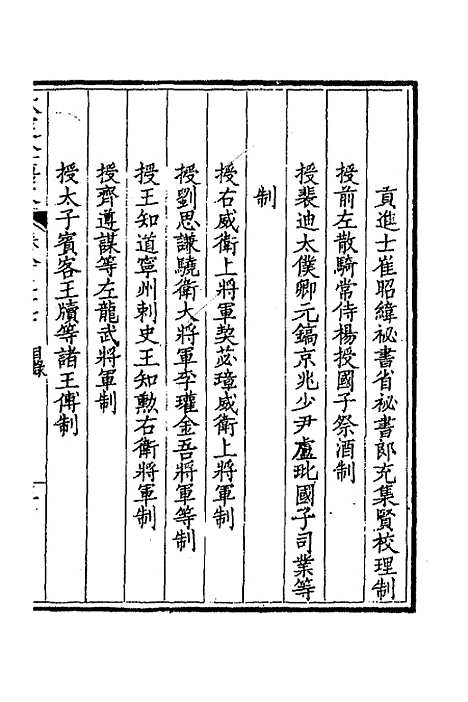 貢進士崔昭緯祕書省祕書郎充集賢校理制
授前左散騎常侍楊授國子祭酒制
授裴迪太僕卿元鎬京兆少尹盧玭國子司業等
制
授右威衛上將軍契苾璋威衛上將軍制
授劉思謙驍衛大將軍李瓘金吾將軍等制
授王知道寧州刺史王知勲右衛將軍制
授齊遵謀等左龍武將軍制
授太子賓客王牘等諸王傅制
目錄